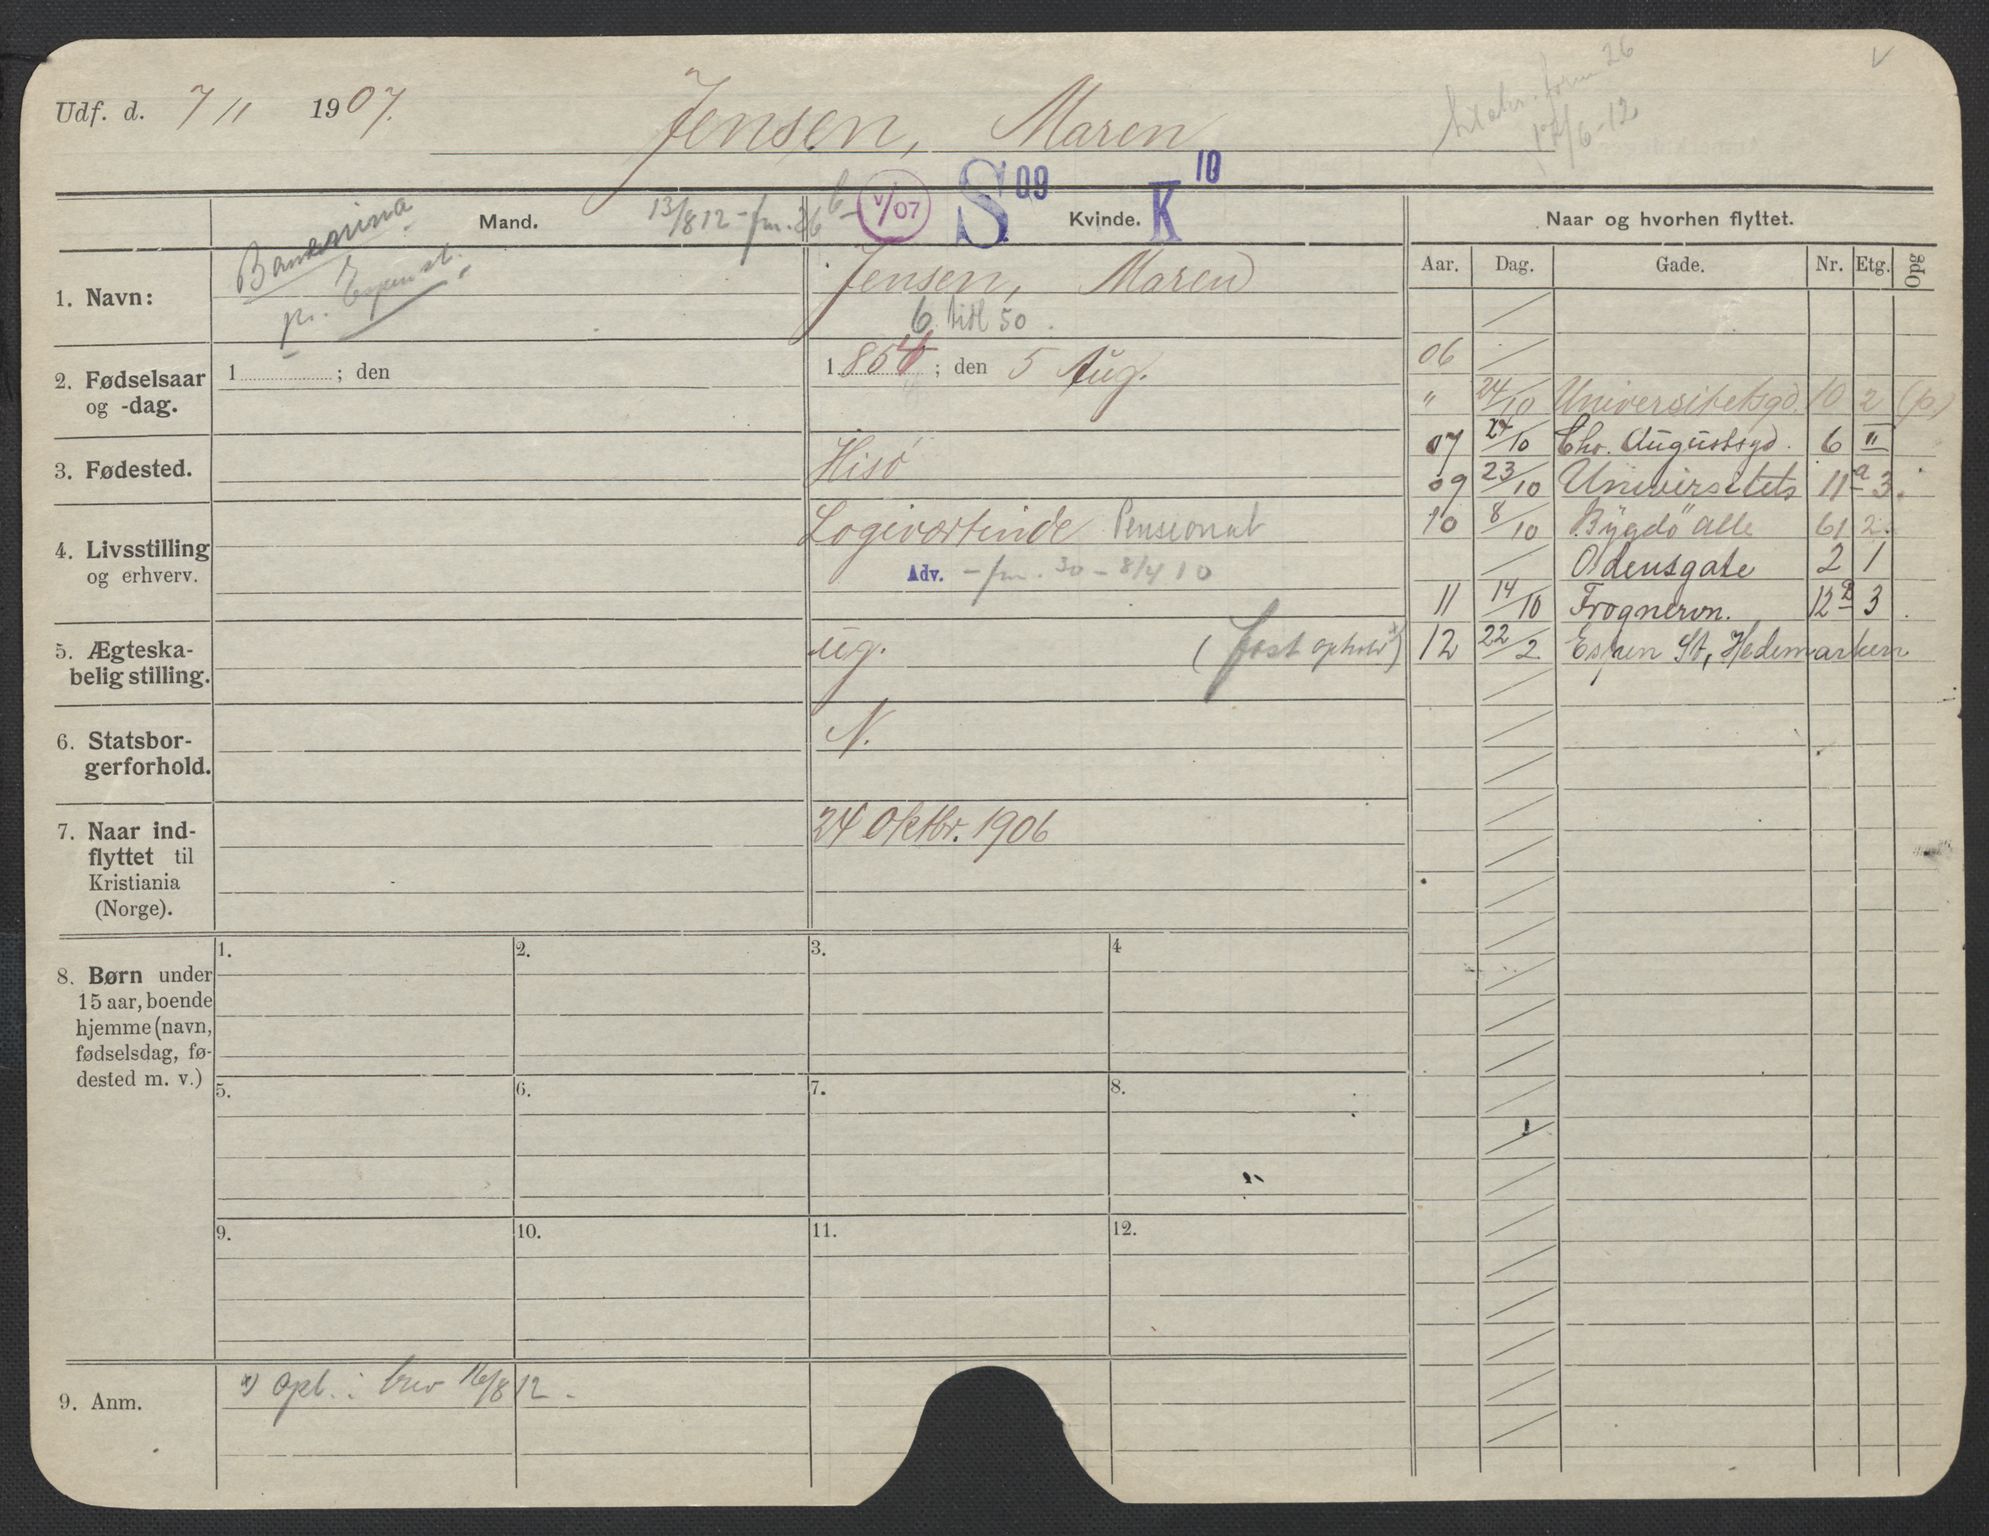 Udf. d. 7/11 1907.
Jensen, Maren
form 26
/6-12
Mand.
13/8 12 - fm. 26
6
V/07
S 09
Kvinde.
K 10
Naar og hvorhen flyttet.
Aar. Dag. Gade. Nr. Etg. Opg
1. Navn:
pr. Espen st.
Jensen, Maren
6 tidl 50.
2. Fødselsaar
og -dag.
1 ; den
1854 ; den 5 Aug.
3. Fødested.
Hisö
4. Livsstilling
og erhverv.
Logiværtinde Pensionat
Adv. - fm. 30 - 8/4 10
5. Ægteska-
belig stilling.
ug.
(fast ophold x)
6. Statsbor-
gerforhold.
N.
7. Naar ind-
flyttet til
Kristiania
(Norge).
24 Oktbr. 1906
06
" 24/10 Universitetsgd. 10 2 (p)
07 24/10 Chr. Augustsgd. 6 II
09 23/10 Universitets 11a 3.
10 8/10 Bygdö alle 61 2.
Odensgate 2 1
11 14/10 Frognervn. 12B 3
12 22/2 Espen St, Hedemarken
8. Børn under
15 aar, boende
hjemme (navn,
fødselsdag, fø-
dested m. v.)
1. 2. 3. 4
5. 6. 7. 8.
9. 10. 11. 12.
9. Anm.
x) Opl. i brev 16/8 12.